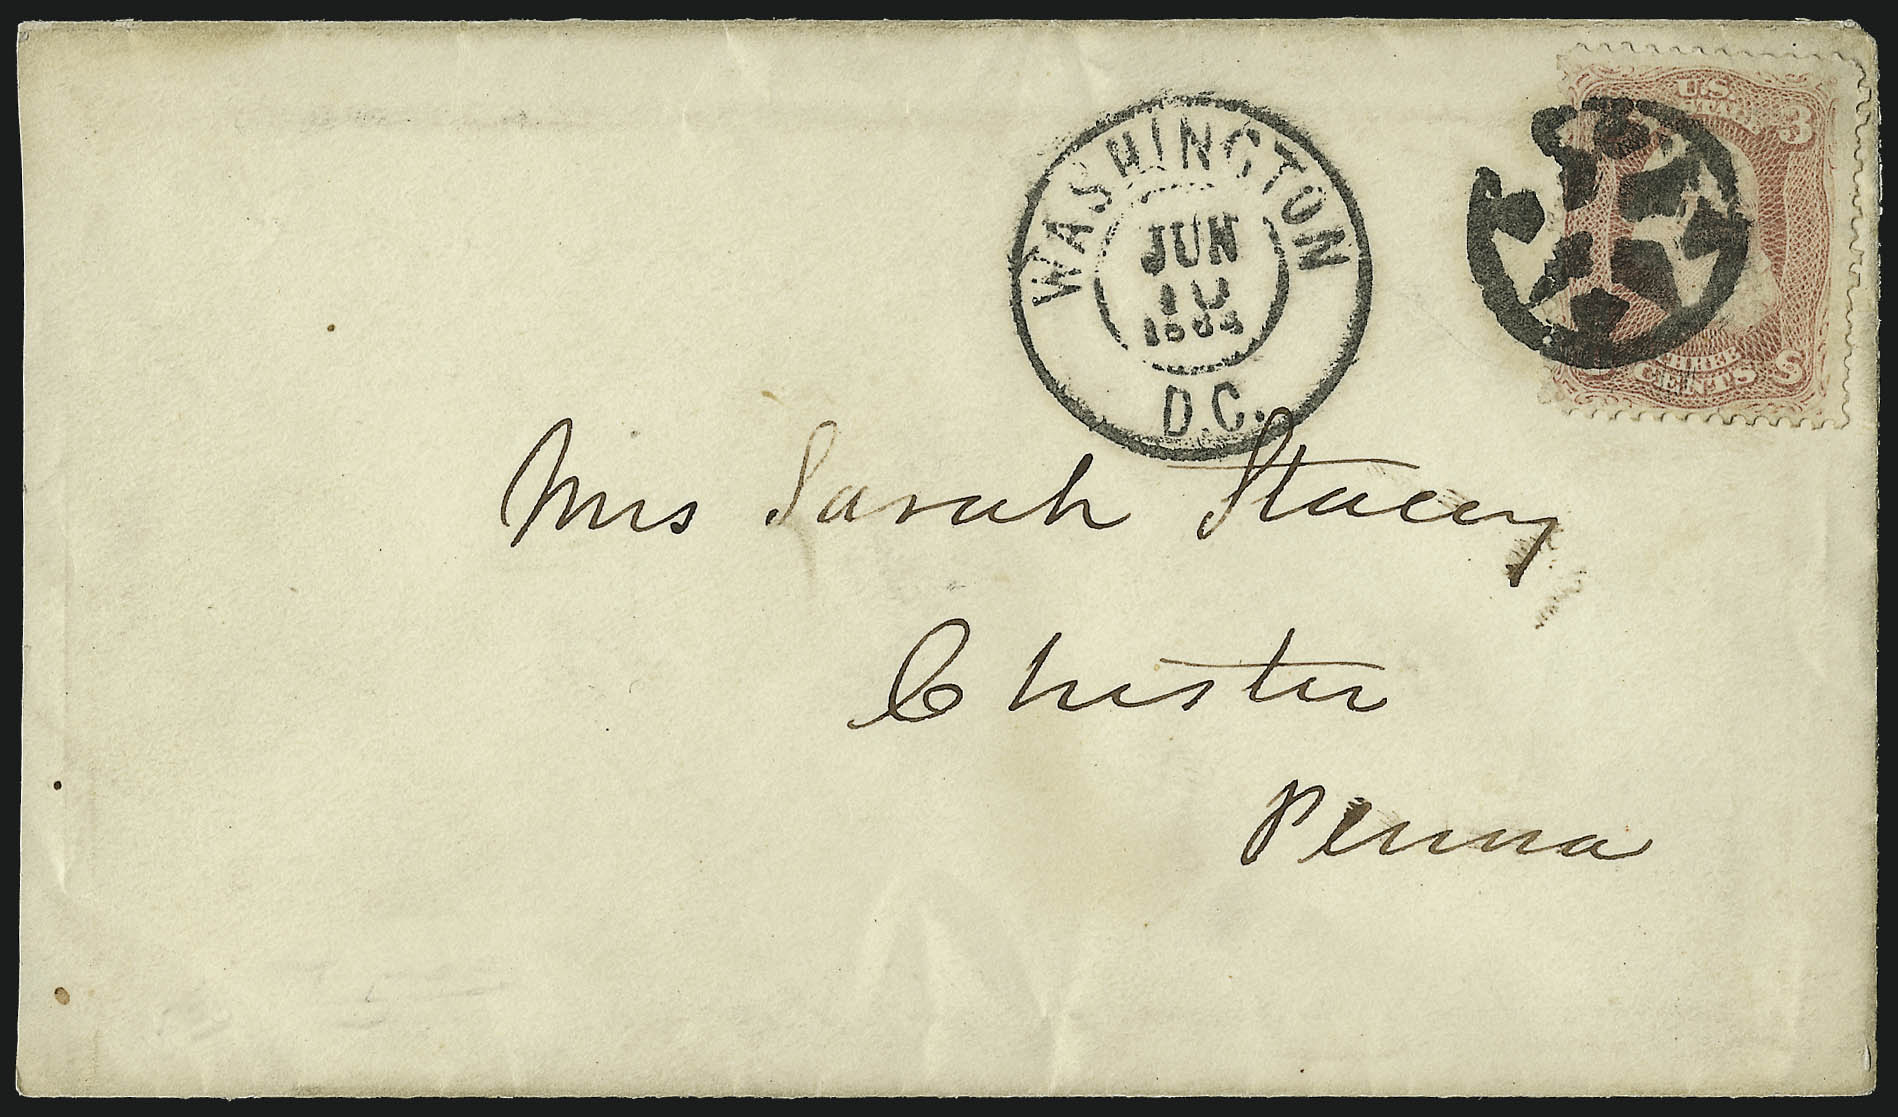 WASHINGTON
JUN
D.C.
U.S.
3
THREE
CENTS
Mrs Sarah Stacey
Chester
Penna